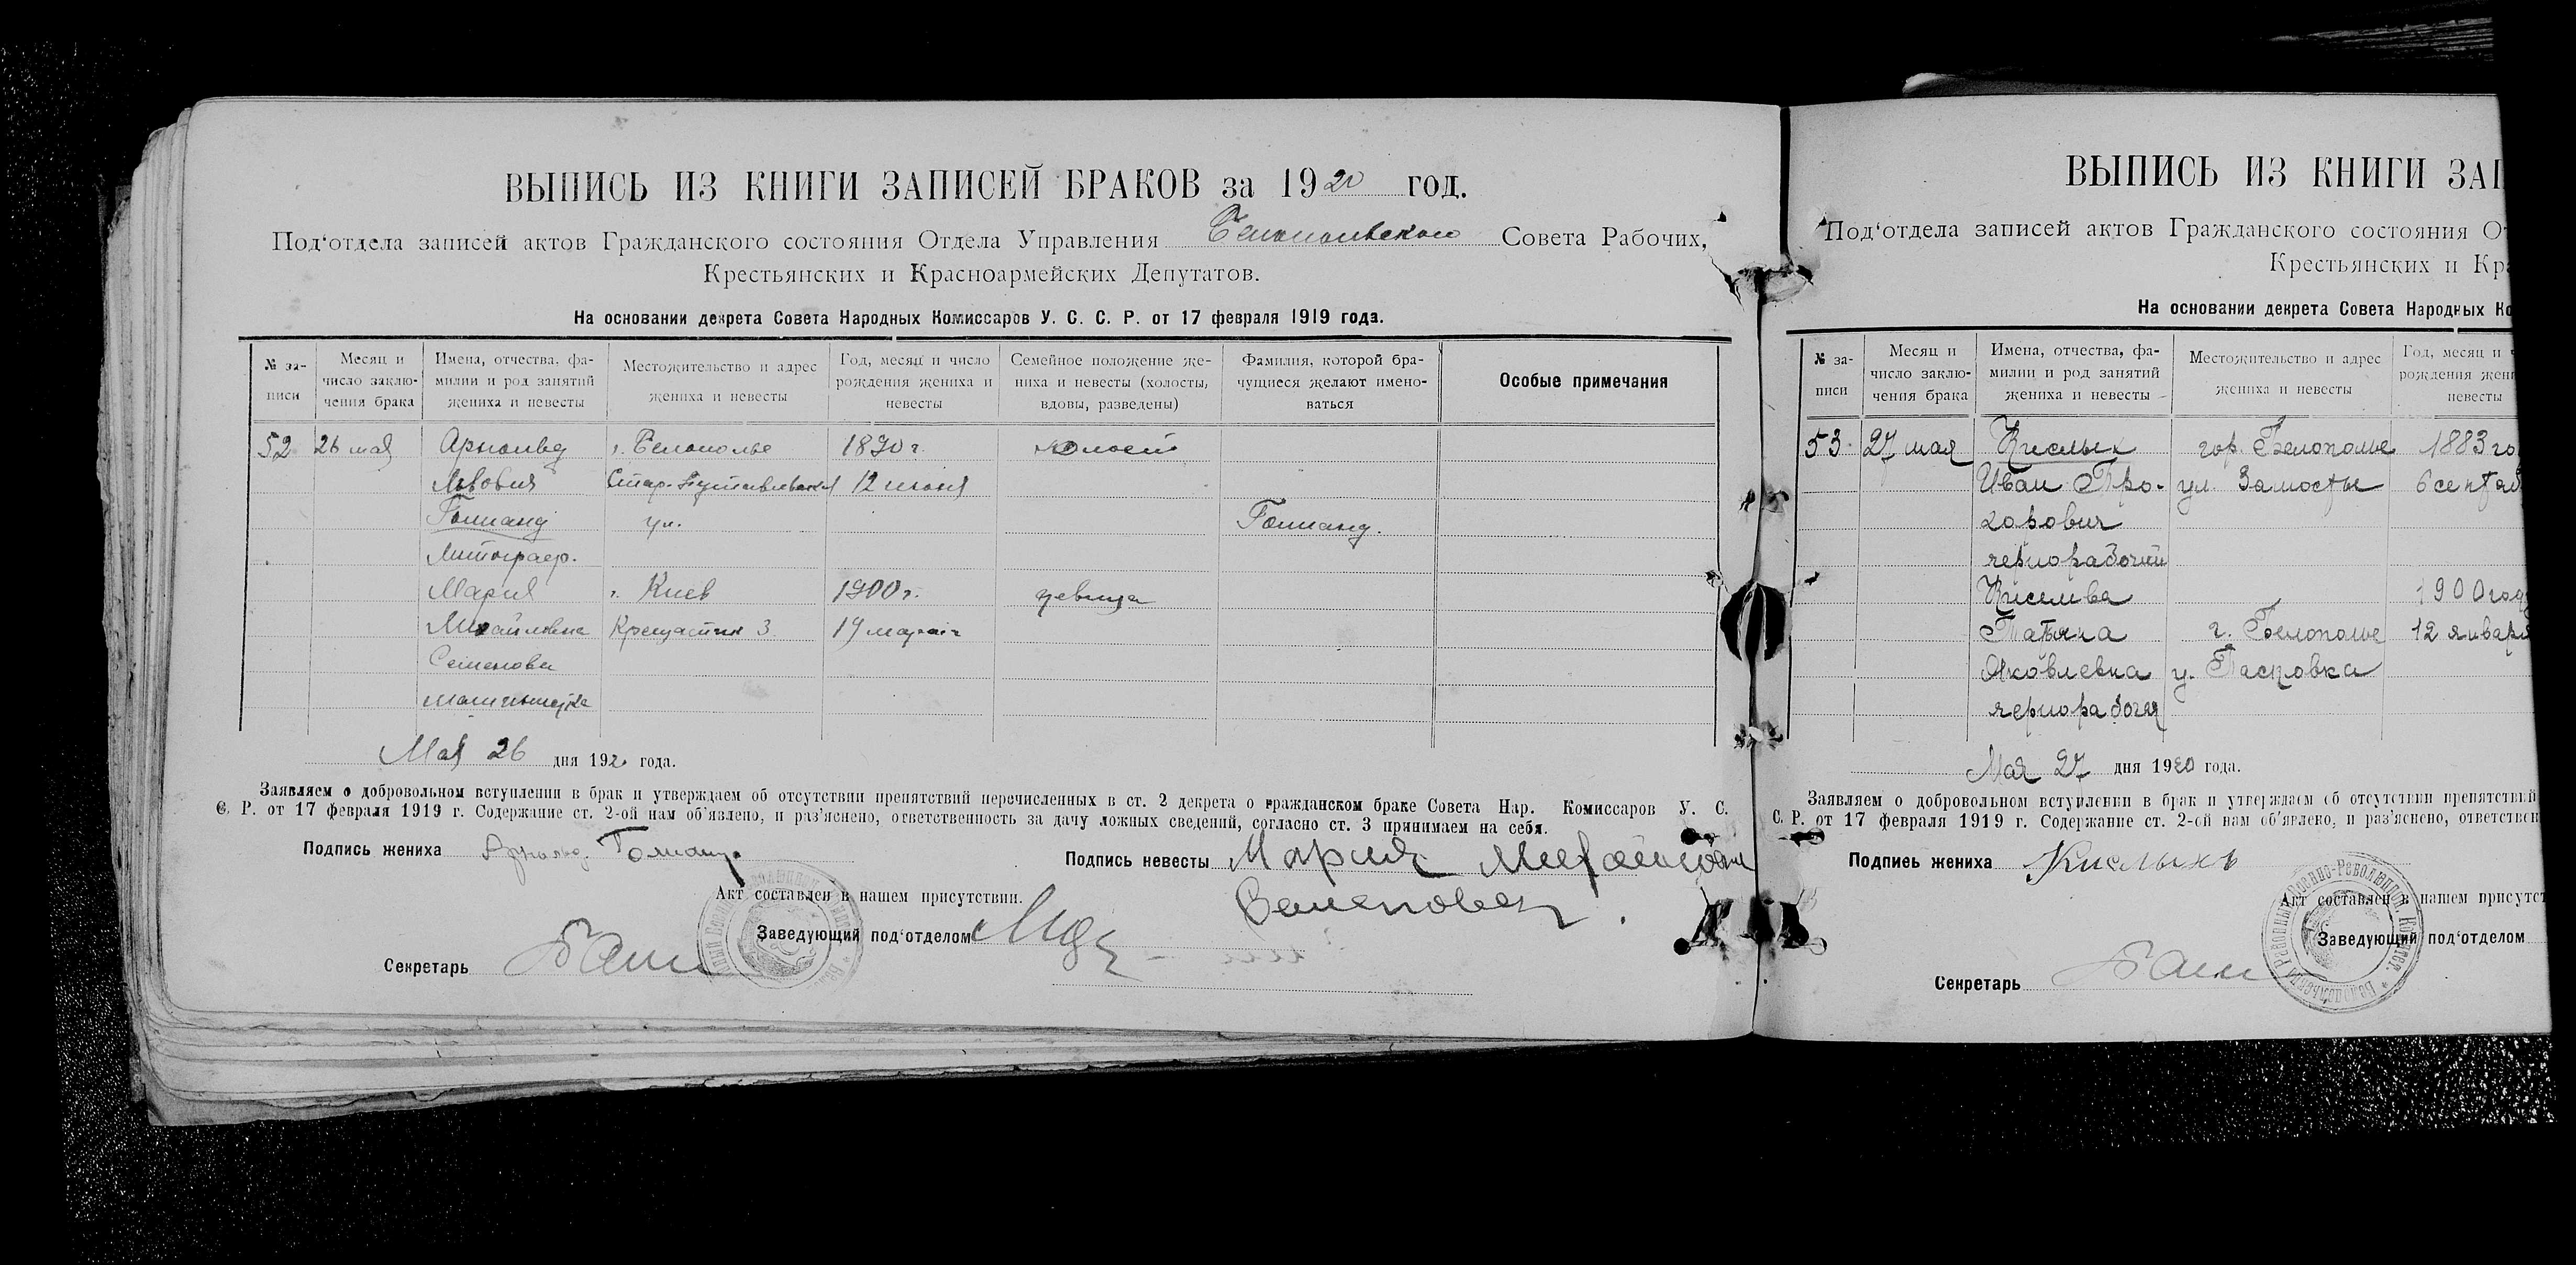 ВЫПИСЬ ИЗ КНИГИ ЗАПИСЕЙ БРАКОВ за 1920 год.
Под‘отдела записей актов Гражданского состояния Отдела Управления Белопольского Совета Рабочих,
Крестьянских и Красноармейских Депутатов.
На основании декрета Совета Народных Комиссаров У. С. С. Р. от 17 февраля 1919 года.
№ за-
писи
Месяц и
число заклю-
чения брака
Имена, отчества, фа-
милии и род занятий
жениха и невесты
Местожительство и адрес
жениха и невесты
Год, месяц и число
рождения жениха и
невесты
Семейное положение же-
ниха и невесты (холосты,
вдовы, разведены)
Фамилия, которой бра-
чущиеся желают имено-
ваться
Особые примечания
52 26 мая Арнольд г. Белополье 1890 г. холост
Львович Стар. Путивльская 12 июня
Голланд ул. Голланд.
Литограф.
Мария г. Киев 1900 г. девица
Михайловна Крещатик 3 19 марта
Семенова
машинистка
Мая 26 дня 192 года.
Заявляем о добровольном вступлении в брак и утверждаем об отсутствии препятствий перечисленных в ст. 2 декрета о гражданском браке Совета Нар. Комиссаров У. С.
С. Р. от 17 февраля 1919 г. Содержание ст. 2-ой нам об‘явлено, и раз‘яснено, ответственность за дачу ложных сведений, согласно ст. 3 принимаем на себя.
Подпись жениха Арнольд Голланд
Подпись невесты Мария Михайловна
Семенова
Акт составлен в нашем присутствии.
Заведующий под‘отделом
Секретарь
ВЫПИСЬ ИЗ КНИГИ ЗАП
Под‘отдела записей актов Гражданского состояния От
Крестьянских и Кра
На основании декрета Совета Народных Ко
№ за-
писи
Месяц и
число заклю-
чения брака
Имена, отчества, фа-
милии и род занятий
жениха и невесты
Местожительство и адрес
жениха и невесты
Год, месяц и ч
рождения жени
невесты
53 27 мая Кислых гор. Белополье 1883 го
Иван Про- ул. Замостье 6 сентяб
хорович
чернорабочий
Киселева 1900 году
Татьяна г. Белополье 12 января
Яковлевна у.
чернорабочая
Мая 27 дня 1920 года.
Заявляем о добровольном вступлении в брак и утверждаем об отсутствии препятствий
С. Р. от 17 февраля 1919 г. Содержание ст. 2-ой нам об‘явлено, и раз‘яснено, ответствен
Подпись жениха Кислыхъ
Акт составлен в нашем присутст
Заведующий под‘отделом
Секретарь